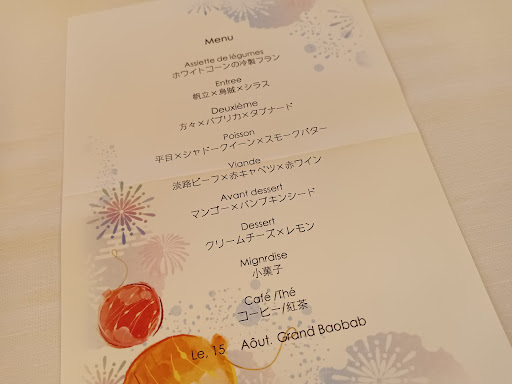 Menu
Assiette de légumes
ホワイトコーンの冷製フラン
Entree
帆立×烏賊×シラス
Deuxième
方々×パプリカ×タプナード
Poisson
平目×シャドークイーン×スモークバター
Viande
淡路ビーフ×赤キャベツ×赤ワイン
Avant dessert
マンゴー×パンプキンシード
Dessert
クリームチーズ×レモン
Mignrdise
小菓子
Café /Thé
コーヒー/紅茶
Le, 15 Aôut. Grand Baobab